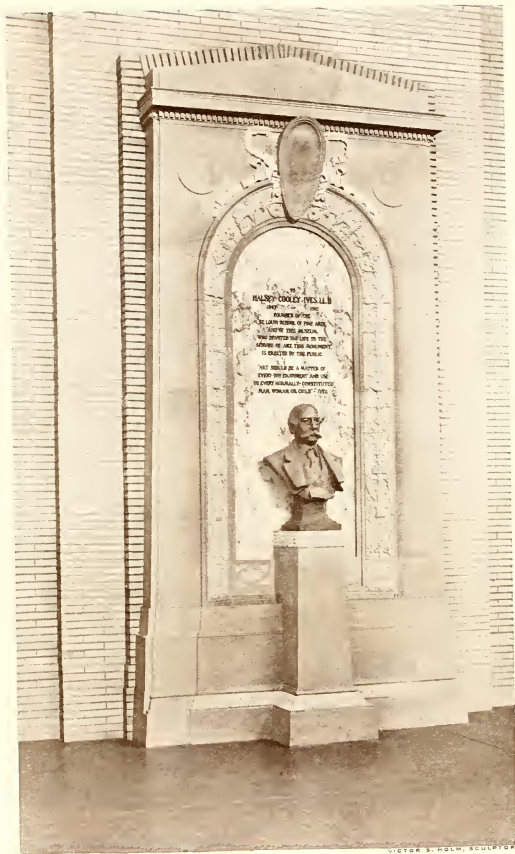 TO
HALSEY COOLEY IVES, LL.D
1847 — 1911
FOUNDER OF THE
ST LOUIS SCHOOL OF FINE ARTS
AND OF THIS MUSEUM,
WHO DEVOTED HIS LIFE TO THE
SERVICE OF ART, THIS MONUMENT
IS ERECTED BY THE PUBLIC
"ART SHOULD BE A MATTER OF
EVERY-DAY ENJOYMENT AND USE
TO EVERY NORMALLY-CONSTITUTED
MAN, WOMAN, OR CHILD"-IVES
VICTOR S. HOLM, SCULPTOR